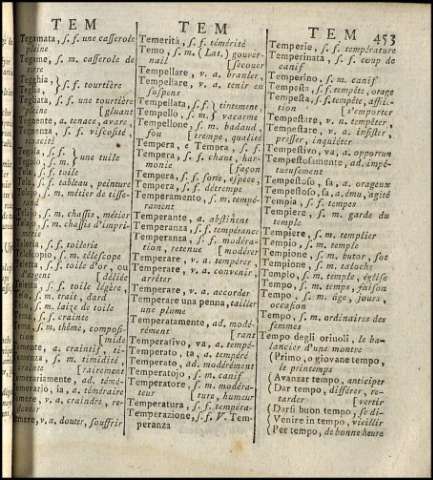 TEM
TEM
TEM 453
Tegamata, s. f. une casserole
pleine
Tegame, s. m. casserole de
terre
Teghia,
s. f. tourtière
Teglia,
Tegliata, s. f. une tourtière
pleine [gluant
Tegnente, a. tenace, avare,
Tegnenza, s. f. viscosité,
tenacité
s. f.
s. m. une tuile
Tela, s. f. toile
s. f. tableau, peinture
s. m. métier de tisse-
s. m. chassis, métier
s. m. chassis d'impri-
merie
s. f. toilerie
s. m. télescope
s. f. toile d'or, ou
d'argent [déliée
s. f. toile légère,
s. m. trait, dard
s. m. laize de toile
s. f. crainte
s. m. thême, composi-
tion [mide
a. craintif, ti-
s. f. timidité,
[rairement
ad. témé-
a. téméraire
v. a. craindre, re-
v. a. douter, souffrir
Temerità, s. f. témérité
Temo, s. m. (Lat.) gouver-
nail [secouer
Tempellare, v. a. branler,
Tempellare, v. a. tenir en
suspens
Tempellata, s. f. tintement,
Tempello, s. m. vacarme
Tempellone, s. m. badaud,
fou [trempe, qualité
Tempera, e Tempra, s. f.
Tempera, s. f. chant, har-
monie [façon
Tempera, s. f. sorte, espece,
Tempera, s. f. détrempe
Temperamento, s. m. tempé-
rament
Temperante, a. abstinent
Temperanza, s. f. tempérance
Temperanza, s. f. modéra-
tion, retenue [modérer
Temperare, v. a. tempérer,
Temperare, v. a. convenir,
arrêter
Temperare, v. a. accorder
Temperare una penna, tailler
une plume
Temperatamente, ad. modé-
rément [rant
Temperativo, va, a. tempé-
Temperato, ta, a. tempéré
Temperato, ad. modérément
Temperatojo, s. m. canif
Temperatore, s. m. modéra-
teur [ture, humeur
Temperatura, s. f. tempéra-
Temperazione, s. f. V. Tem-
peranza
Temperie, s. f. température
Temperinata, s. f. coup de
canif
Temperino, s. m. canif
Tempesta, s. f. tempête, orage
Tempesta, s. f. tempête, afflic-
tion [s'emporter
Tempestare, v. n. tempêter,
Tempestare, v. a. insister,
presser, inquiéter
Tempestivo, va, a. opportun
Tempestosamente, ad. impé-
tueusement
Tempestoso, sa, a. orageux
Tempestoso, sa, a. ému, agité
Tempia, s. f. tempes
Tempiere, s. m. garde du
temple
Tempiere, s. m. templier
Tempio, s. m. temple
Tempione, s. m. butor, sot
Tempione, s. m. taloche
Tempio, s. m. temple, église
Tempo, s. m. temps, saison
Tempo, s. m. âge, jours,
occasion
Tempo, s. m. ordinaires des
femmes
Tempo degli oriuoli, le ba-
lancier d'une montre
(Primo, o giovane tempo,
le printemps
(Avanzar tempo, anticiper
(Dar tempo, différer, re-
tarder [vertir
(Darsi buon tempo, se di-
(Venire in tempo, vieillir
(Per tempo, de bonne heure